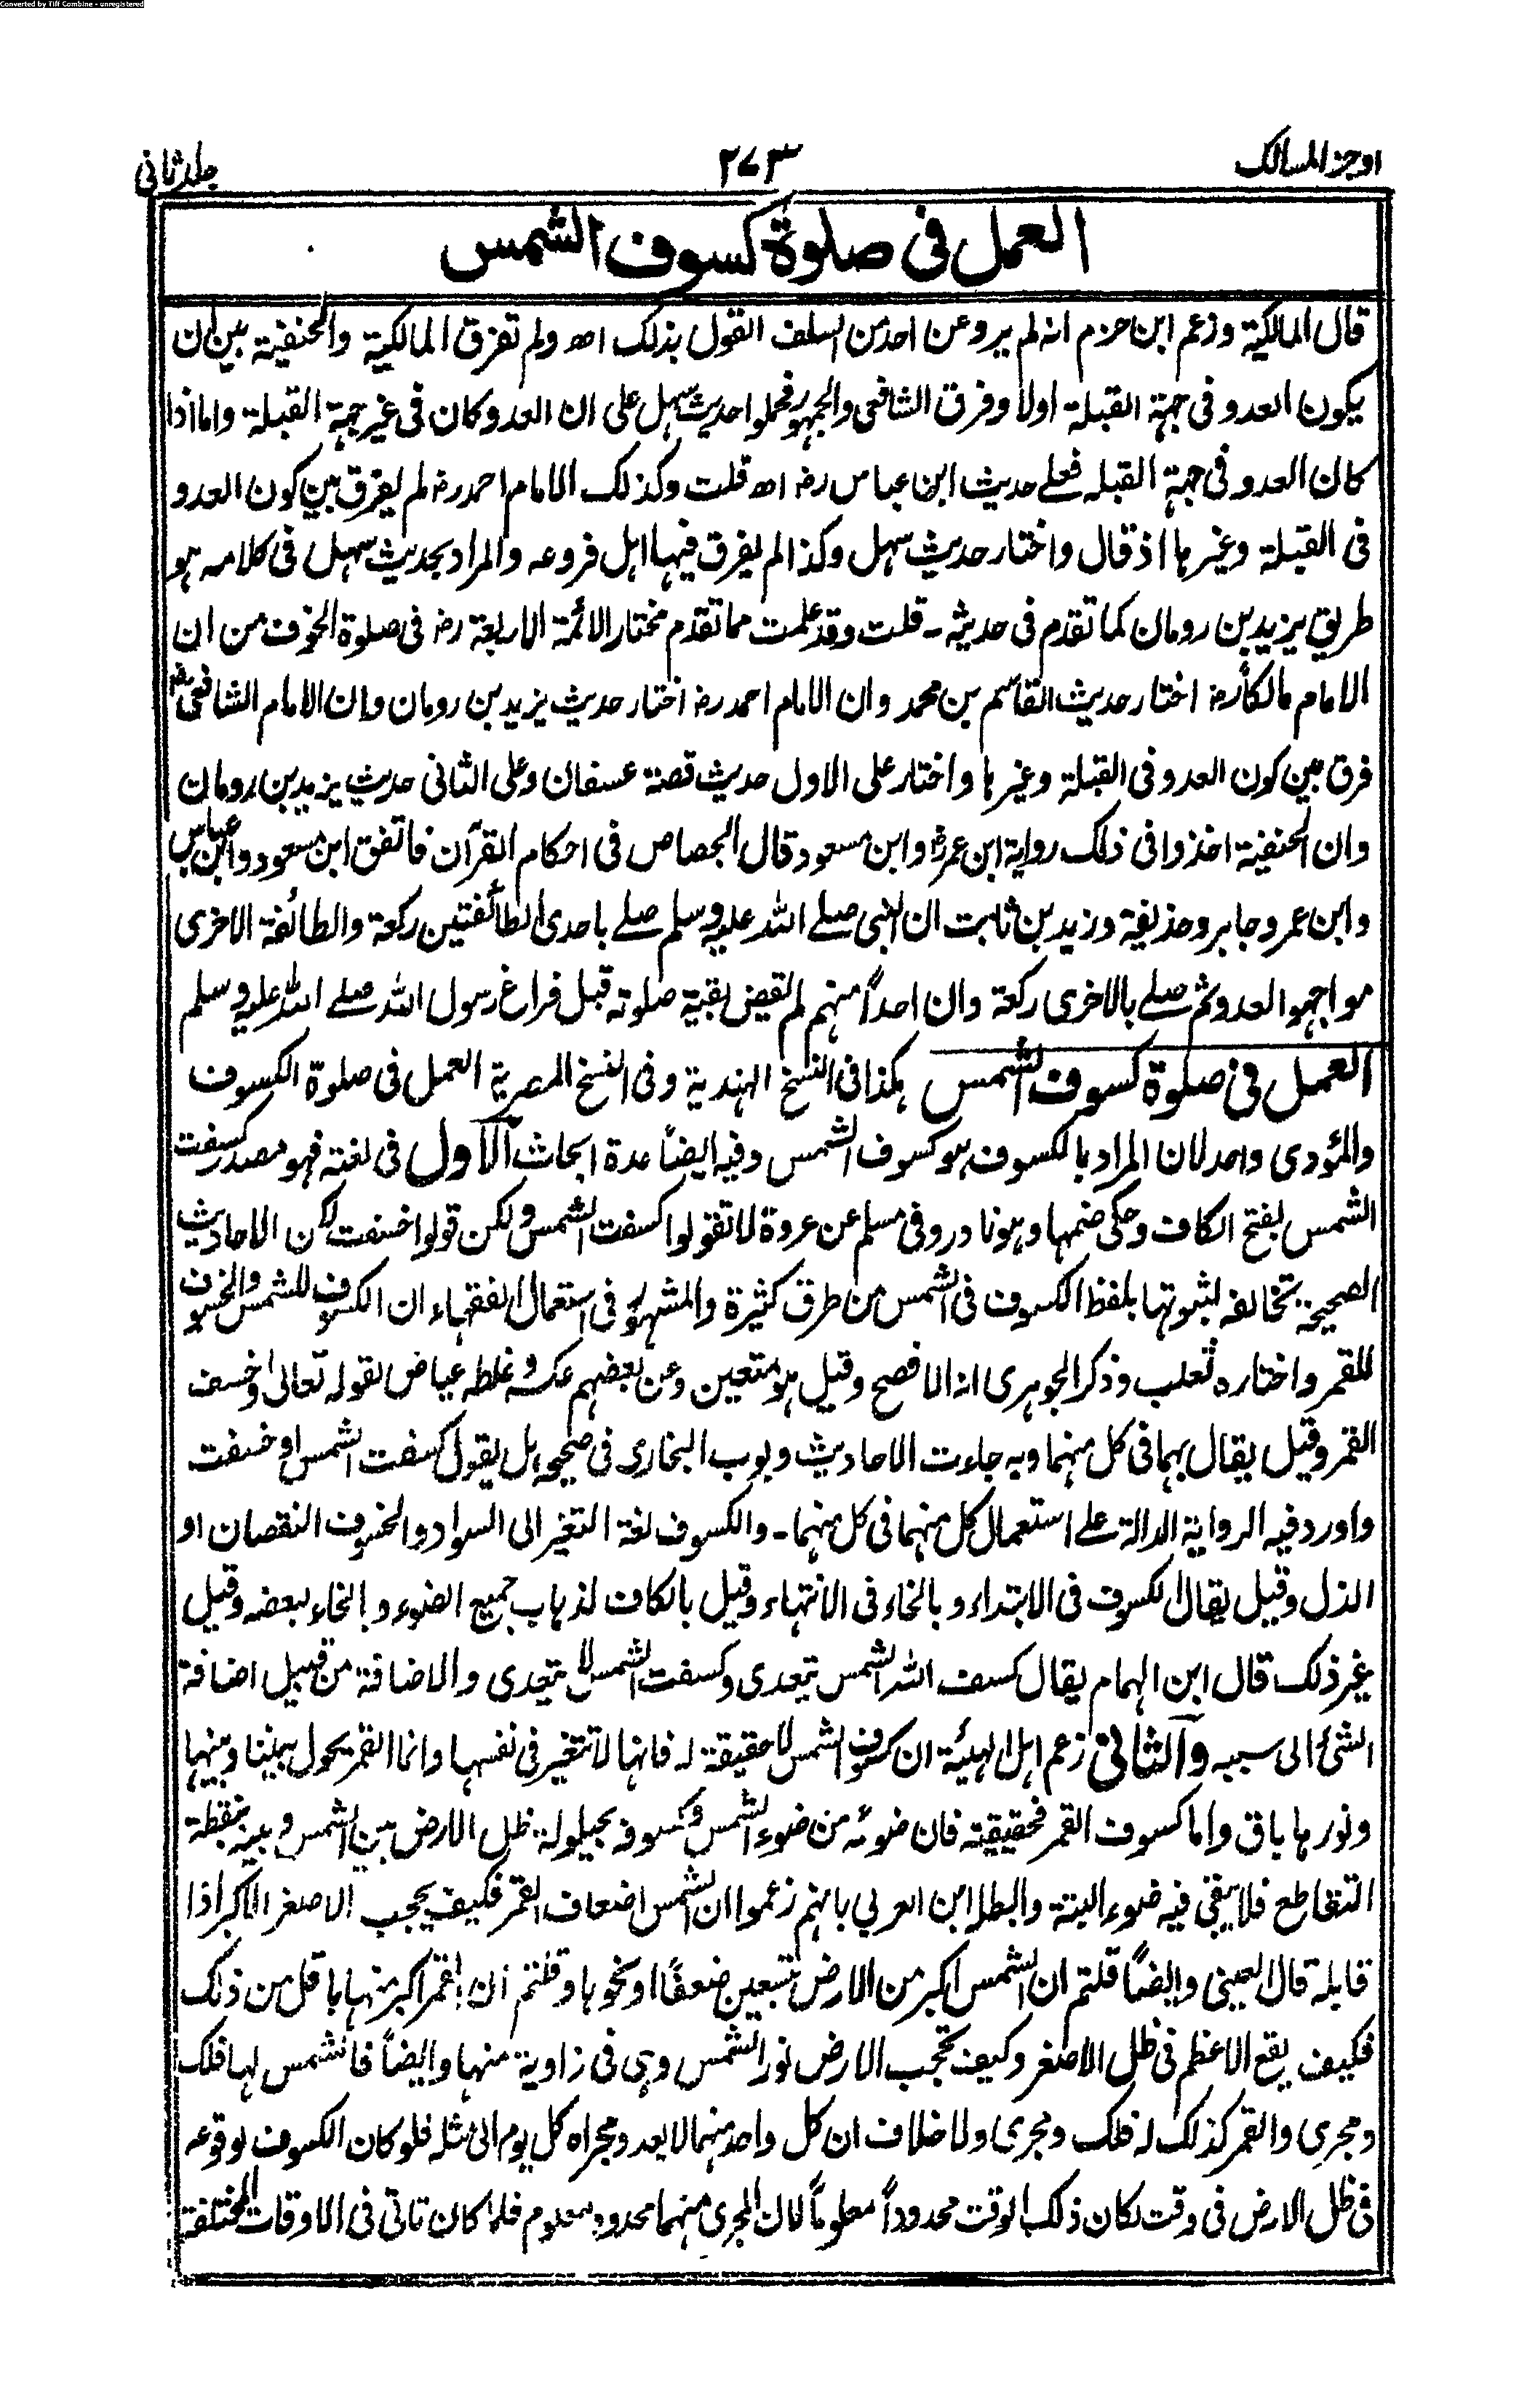 Converted by Tiff Combine - unregistered
اوجز المسالك
٢٧٣
جلد ثانى
العمل فى صلوة كسوف الشمس
قال المالكية وزعم ابن حزم انه لم يرو عن احد من السلف القول بذلك اه ولم تفرق المالكية والحنفية بين ان
يكون العدو فى جهة القبلة اولا وفرق الشافعى والجمهور فحملوا حديث سهل على ان العدو كان فى غير جهة القبلة واما اذا
كان العدو فى جهة القبلة فعلى حديث ابن عباس رض اه قلت وكذلك الامام احمد رض لم يفرق بين كون العدو
فى القبلة وغيرها اذ قال واختار حديث سهل وكذا لم يفرق فيها اهل فروعه والمراد بحديث سهل فى كلامه هو
طريق يزيد بن رومان كما تقدم فى حديثه - قلت وقد علمت مما تقدم مختار الائمة الاربعة رض فى صلوة الخوف من ان
الامام مالكا رض اختار حديث القاسم بن محمد وان الامام احمد رض اختار حديث يزيد بن رومان وان الامام الشافعى رض
فرق بين كون العدو فى القبلة وغيرها واختار على الاول حديث قصة عسفان وعلى الثانى حديث يزيد بن رومان
وان الحنفية اخذوا فى ذلك رواية ابن عمر رض وابن مسعود قال الجصاص فى احكام القرآن فاتفق ابن مسعود وابن عباس
وابن عمر وجابر وحذيفة وزيد بن ثابت ان النبى صلى الله عليه وسلم صلى باحدى الطائفتين ركعة والطائفة الاخرى
مواجهوا العدو ثم صلى بالاخرى ركعة وان احداً منهم لم يقض بقية صلوته قبل فراغ رسول الله صلى الله عليه وسلم
العمل فى صلوة كسوف الشمس هكذا فى النسخ الهندية وفى النسخ المصرية العمل فى صلوة الكسوف
والمؤدى واحد لان المراد بالكسوف هو كسوف الشمس وفيه ايضاً عدة ابحاث الاول فى لغته فهو مصدر كسفت
الشمس بفتح الكاف وحكى ضمها وهو نادر وفى مسلم عن عروة لا تقولوا كسفت الشمس ولكن قولوا خسفت لكن الاحاديث
الصحيحة تخالفه لثبوتها بلفظ الكسوف فى الشمس من طرق كثيرة والمشهور فى استعمال الفقهاء ان الكسوف للشمس والخسوف
للقمر واختاره ثعلب وذكر الجوهرى انه الافصح وقيل هو متعين وعن بعضهم عكسه وغلطه عياض لقوله تعالى وخسف
القمر وقيل يقال بهما فى كل منهما وبه جاءت الاحاديث وبوب البخارى فى صحيحه هل يقول كسفت الشمس او خسفت
واورد فيه الرواية الدالة على استعمال كل منهما فى كل منهما - والكسوف لغة التغير الى السواد والخسوف النقصان او
الذل وقيل يقال الكسوف فى الابتداء وبالخاء فى الانتهاء وقيل بالكاف لذهاب جميع الضوء وبالخاء لبعضه وقيل
غير ذلك قال ابن الهمام يقال كسف الله الشمس يتعدى وكسفت الشمس لا يتعدى والاضافة من قبيل اضافة
الشئ الى سببه والثانى زعم اهل الهيئة ان كسوف الشمس لا حقيقة له فانها لا تتغير فى نفسها وانما القمر يحول بيننا وبينها
ونورها باق واما كسوف القمر فحقيقته فان ضوئه من ضوء الشمس وكسوفه بحيلولة ظل الارض بين الشمس وبينه بنقطة
التقاطع فلا يبقى فيه ضوء البتة وابطله ابن العربي بانهم زعموا ان الشمس اضعاف القمر فكيف يحجب الاصغر الاكبر اذا
قابله قال العينى وايضاً قلتم ان الشمس اكبر من الارض بتسعين ضعفاً او نحوها وقلتم ان القمر اكبر منها باقل من ذلك
فكيف يقع الاعظم فى ظل الاصغر وكيف تحجب الارض نور الشمس وهى فى زاوية منها وايضاً فالشمس لها فلك
ومجرى والقمر كذلك له فلك ومجرى ولا خلاف ان كل واحد منهما لا يعدو مجراه كل يوم الى مثله فلو كان الكسوف لوقوعه
فى ظل الارض فى وقت لكان ذلك الوقت محدوداً معلوماً لان المجرى منهما محدود معلوم فلما كان تاتى فى الاوقات المختلفة